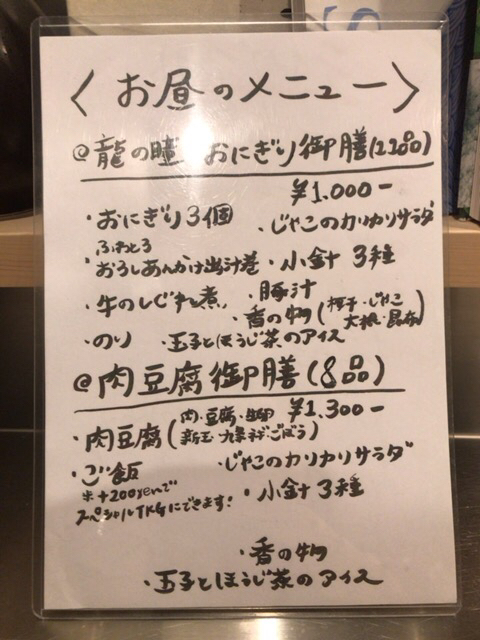 〈お昼のメニュー〉
@龍の瞳 おにぎり御膳(12品)
¥1.000-
・おにぎり3個
・じゃこのカリカリサラダ
ふわとろ
・おろしあんかけ出汁巻
・小鉢 3種
・牛のしぐれ煮
・豚汁
・香の物(柚子・じゃこ
大根・昆布)
・のり
・玉子とほうじ茶のアイス
@肉豆腐御膳(8品)
¥1.300-
・肉豆腐(肉・豆腐・
新玉・九条ネギ・ごぼう)
・ご飯
・じゃこのカリカリサラダ
※+200yenで
スペシャルTKGにできます!
・小鉢 3種
・香の物
・玉子とほうじ茶のアイス